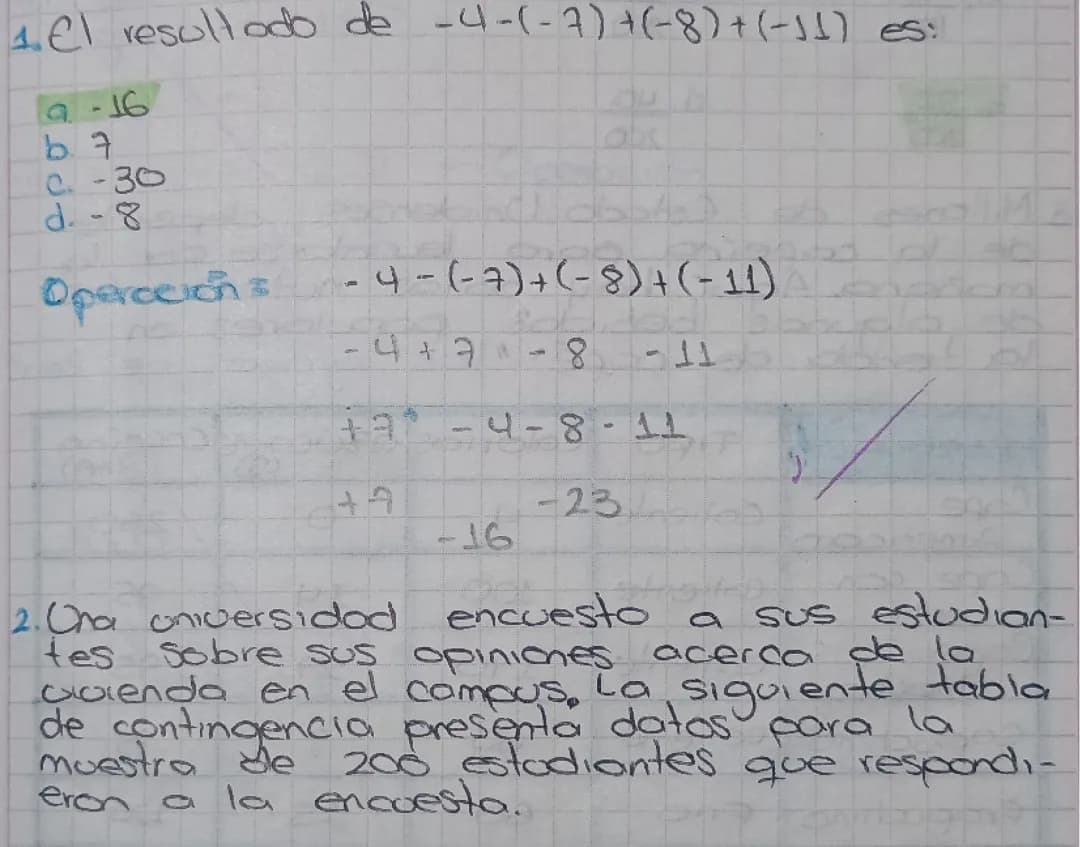 1. El resultado de -4-(-7)+(-8)+(-11) es:
a. -16
b. 7
c. -30
d. -8
Operación: -4-(-7)+(-8)+(-11)
-4+7 -8 -11
+7 -4-8-11
+7 -23
-16
2. Una universidad encuesto a sus estudian-
tes sobre sus opiniones acerca de la
vivienda en el campus. La siguiente tabla
de contingencia presenta datos para la
muestra de 200 estudiantes que respondi-
eron a la encuesta.